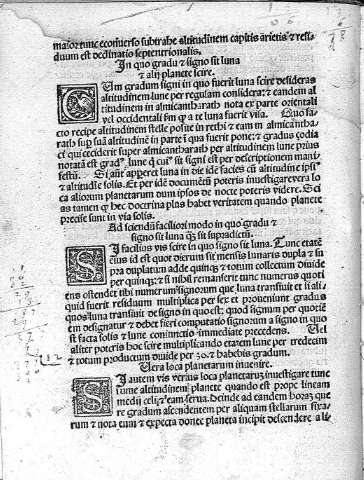 maior tunc econuerso subtrahe altitudinem capitis arietis & resi
duum est declinatio septentrionalis.
In quo gradu & signo sit luna
& alij planete scire.
CUm gradum signi in quo fuerit luna scire desideras
altitudinem lune per regulam considera: & eandem al
titudinem in almicantharath nota ex parte orientali
vel occidentali sm q a te luna fuerit visa. Quo fa
cto recipe altitudinem stelle posite in rethi & eam in almicãtha
rath sup suã altitudinẽ in parte ĩ qua fuerit pone: & gradus zodia
ci qui ceciderit super almicantharath per altitudinem lune prius
notatã est gradꝰ lune q cuiꝰ sit signi est per descriptionem mani
festũ. Si aũt apperet luna in die ide facies cũ altitudine ipsiꝰ
& altitudie solis. Et per idẽ documẽtũ poteris inuestigare vera lo
ca aliorum planetarum dum ipsos de nocte poteris videre. Sci
as tamen q hec doctrina plus habet veritatem quando planete
precise sunt in via solis.
Ad sciendũ faciliori modo in quo gradu &
signo sit luna qʒ sit supradictũ.
SI facilius vis scire in quo signo sit luna. Tunc etatẽ
eius id est quot dierum sit mensis lunaris dupla & su
pra duplatum adde quinqʒ & totum collectum diuide
per quinqʒ: & si nihil remanserit tunc numerus quoti
ens ostendet tibi numerum signorum que luna transiuit et si ali
quid fuerit residuum multiplica per sex et prouenient gradus
quos luna transiuit de signo in quo est: quod signum per quotiẽ
tem designatur & debet fieri computatio signorum a signo in quo
est facta solis & lune coniunctio immediate precedens. Uel
aliter poteris hoc scire multiplicando etatem lune per tredecim
& totum productum diuide per 30. & habebis gradum.
Uera loca planetarum inuenire.
SI autem vis verius loca planetarum inuestigare tunc
sume altitudinem planete quando est prope lineam
medij celi & eam serua. Deinde ad eandem horam que
re gradum ascendentem per aliquam stellarum fixa
rum & nota eum & expecta donec planeta incipit descendere a li